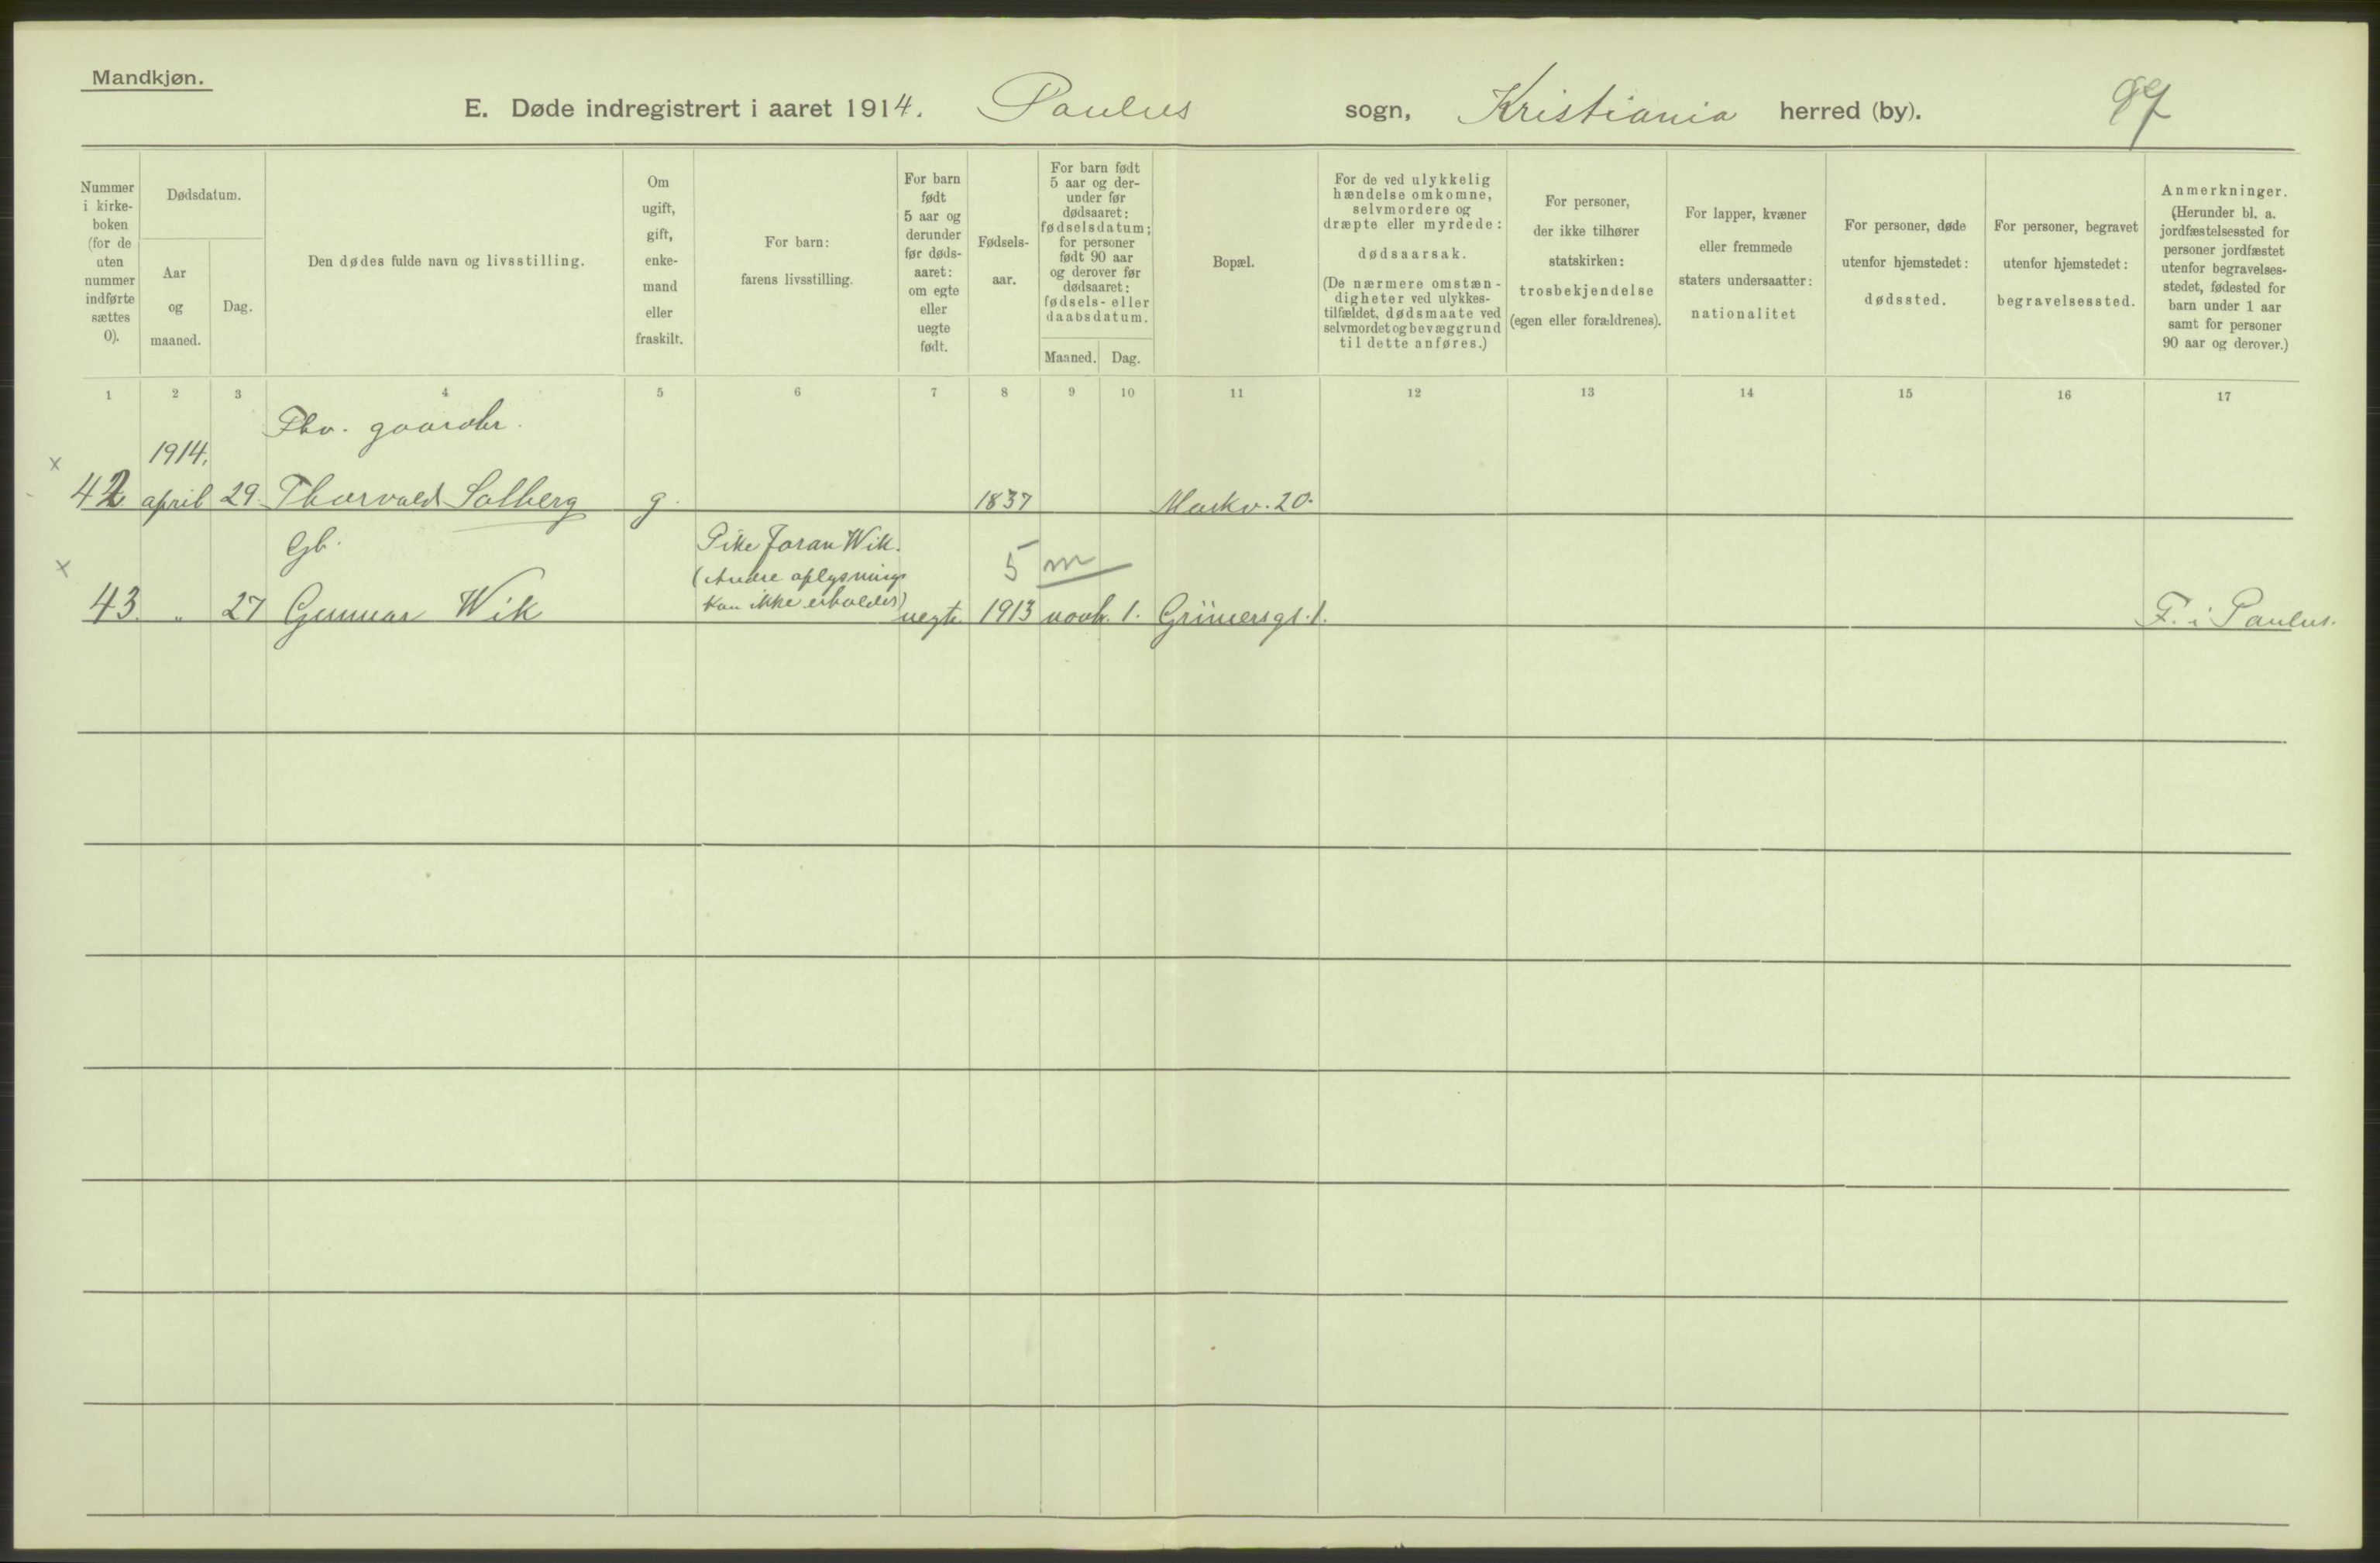 Mandkjøn.
E. Døde indregistrert i aaret 1914. Paulus sogn, Kristiania herred (by). 97
Nummer i kirke-boken (for de uten nummer indførte sættes 0).
Dødsdatum.
Aar og maaned.
Dag.
Den dødes fulde navn og livsstilling.
Om ugift, gift, enke-mand eller fraskilt.
For barn: farens livsstilling.
For barn født 5 aar og derunder før døds-aaret: om egte eller uegte født.
Fødsels-aar.
For barn født 5 aar og der-under før dødsaaret: fødselsdatum; for personer født 90 aar og derover før dødsaaret: fødsels- eller daabsdatum.
Maaned. Dag.
Bopæl.
For de ved ulykkelig hændelse omkomne, selvmordere og dræpte eller myrdede: dødsaarsak. (De nærmere omstæn-digheter ved ulykkes-tilfældet, dødsmaate ved selvmordet og bevæggrund til dette anføres.)
For personer, der ikke tilhører statskirken: trosbekjendelse (egen eller forældrenes).
For lapper, kvæner eller fremmede staters undersaatter: nationalitet
For personer, døde utenfor hjemstedet: dødssted.
For personer, begravet utenfor hjemstedet: begravelsessted.
Anmerkninger. (Herunder bl. a. jordfæstelsessted for personer jordfæstet utenfor begravelses-stedet, fødested for barn under 1 aar samt for personer 90 aar og derover.)
1 2 3 4 5 6 7 8 9 10 11 12 13 14 15 16 17
Fhv. gaardbr.
1914.
x 42 april 29. Thorvald Solberg g. 1837 Markv. 20.
Gb. Pike Joran Wik. 5 m
x (Andre oplysning
kan ikke erholdes)
43. " 27 Gunnar Wik uegte 1913 novb. 1. Grünersgt. 1. F. i Paulus.